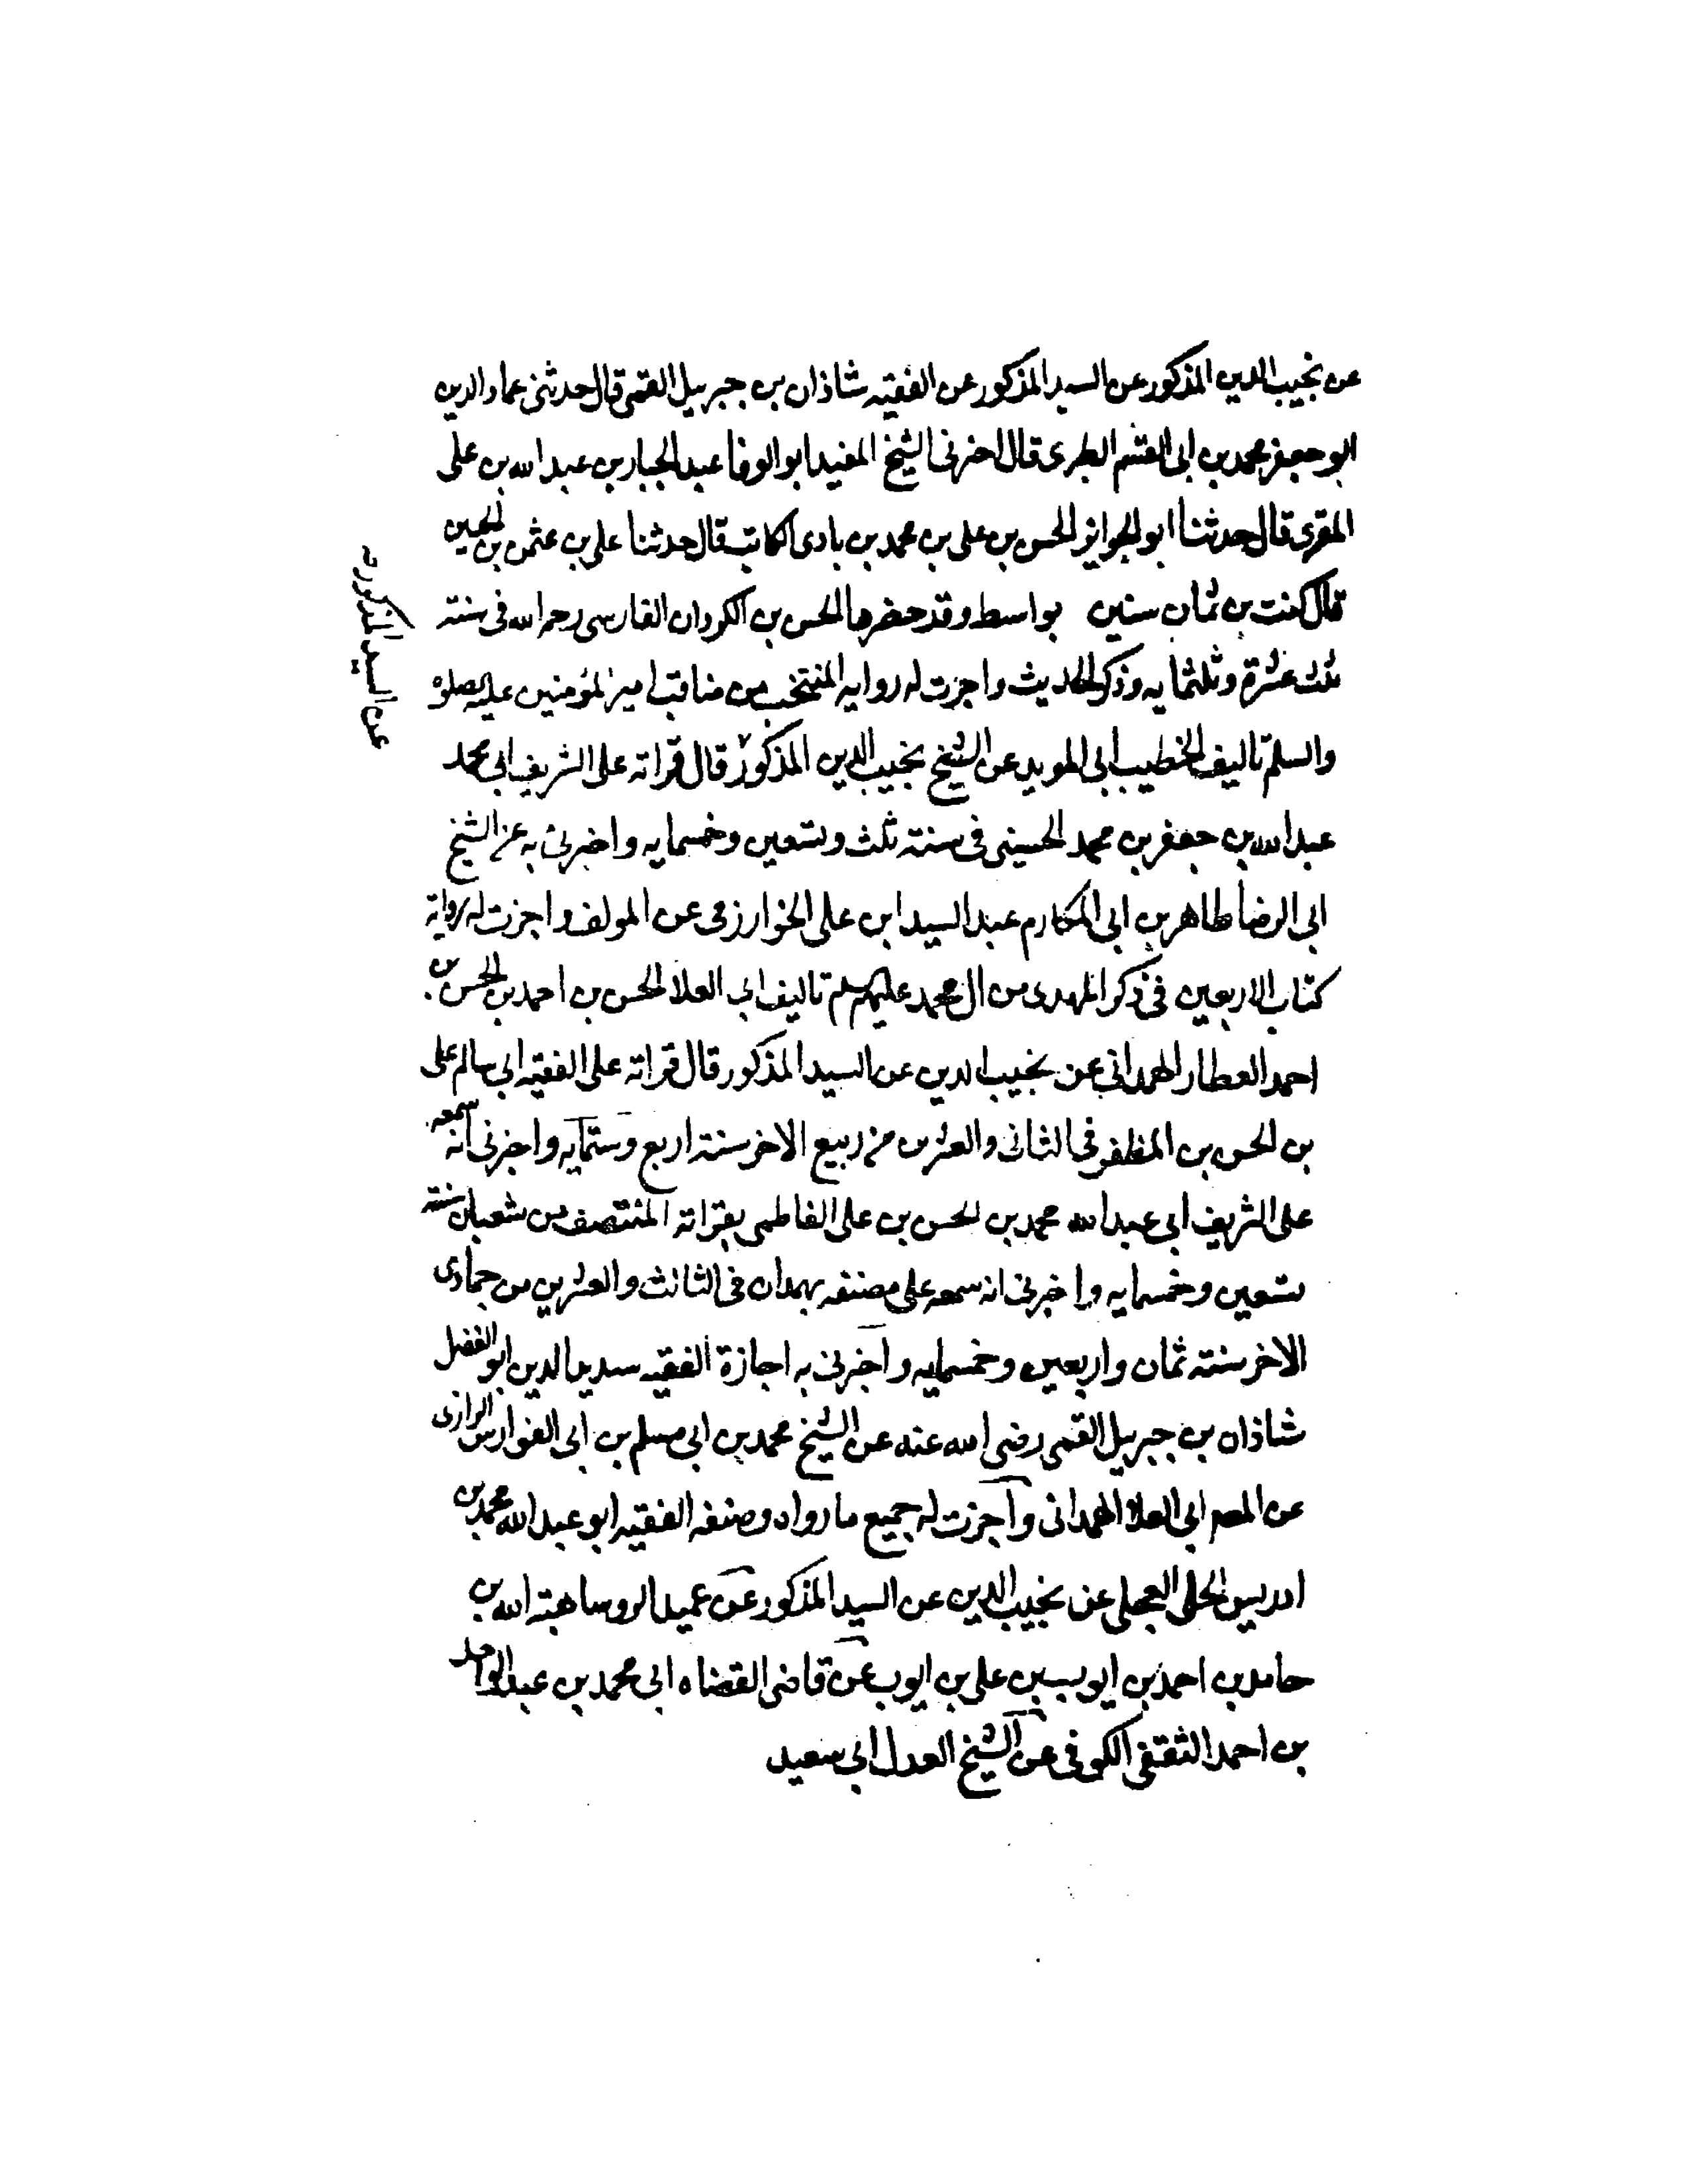 عن نجيب الدين المذكور عن السيد المذكور عن الفقيه شاذان بن جبرييل القمي قال حدثني عماد الدين
ابو جعفر محمد بن ابى القسم الطبرى قال اخبرنى الشيخ المفيد ابو الوفا عبد الجبار بن عبد الله بن على
المقرى قال حدثنا ابو الجوايز الحسن بن على بن محمد بن بادى الكاتب قال حدثنا على بن عثمن بن الحسين
قال كنت بن ثمان سنين بواسط وقد حضرها الحسن بن الكردان الفارسى رحمه الله فى سنة
ثلث عشرة وثلثمايه وذكر الحديث واجزت له روايه المنتخب من مناقب امير المؤمنين عليه الصلوه
والسلم تاليف الخطيب ابى المويد عن الشيخ نجيب الدين المذكور قال قراته على الشريف ابى محمد
عبد الله بن جعفر بن محمد الحسينى فى سنة ثلث وتسعين وخمسمايه واخبرنى به عن الشيخ
ابى الرضا طاهر بن ابى المكارم عبد السيد ابن على الخوارزمى عن المولف واجزت له رواية
كتاب الاربعين فى ذكر المهدى من ال محمد عليهم سلم تاليف ابى العلا الحسن بن احمد بن الحسن بن
احمد العطار الهمدانى عن نجيب الدين عن السيد المذكور قال قراته على الفقيه ابى سالم على
بن الحسن بن المظفر فى الثانى والعشرين من ربيع الاخر سنة اربع وستمايه واخبرنى انه سمعه
على الشريف ابى عبد الله محمد بن الحسن بن على الفاطمى بقراته المنتصف من شعبان سنة
تسعين وخمسمايه واخبرنى انه سمعه على مصنفه بهمدان فى الثالث والعشرين من جمادى
الاخر سنة ثمان واربعين وخمسمايه واخبرنى به اجازة الفقيه سديد الدين ابو الفضل
شاذان بن جبرييل القمى رضى الله عنه عن الشيخ محمد بن ابى مسلم بن ابى الفوارس الرازى
عن المص ابى العلا الهمدانى واجزت له جميع ما رواه وصنفه الفقيه ابو عبد الله محمد بن
ادريس الحلى العجلى عن نجيب الدين عن السيد المذكور عن عميد الروسا هبة الله بن
حامد بن احمد بن ايوب بن على بن ايوب عن قاضى القضاه ابى محمد بن عبد الواحد
بن احمد الثقفى الكوفى عن الشيخ العدل ابى سعيد
عن السيد المذكور